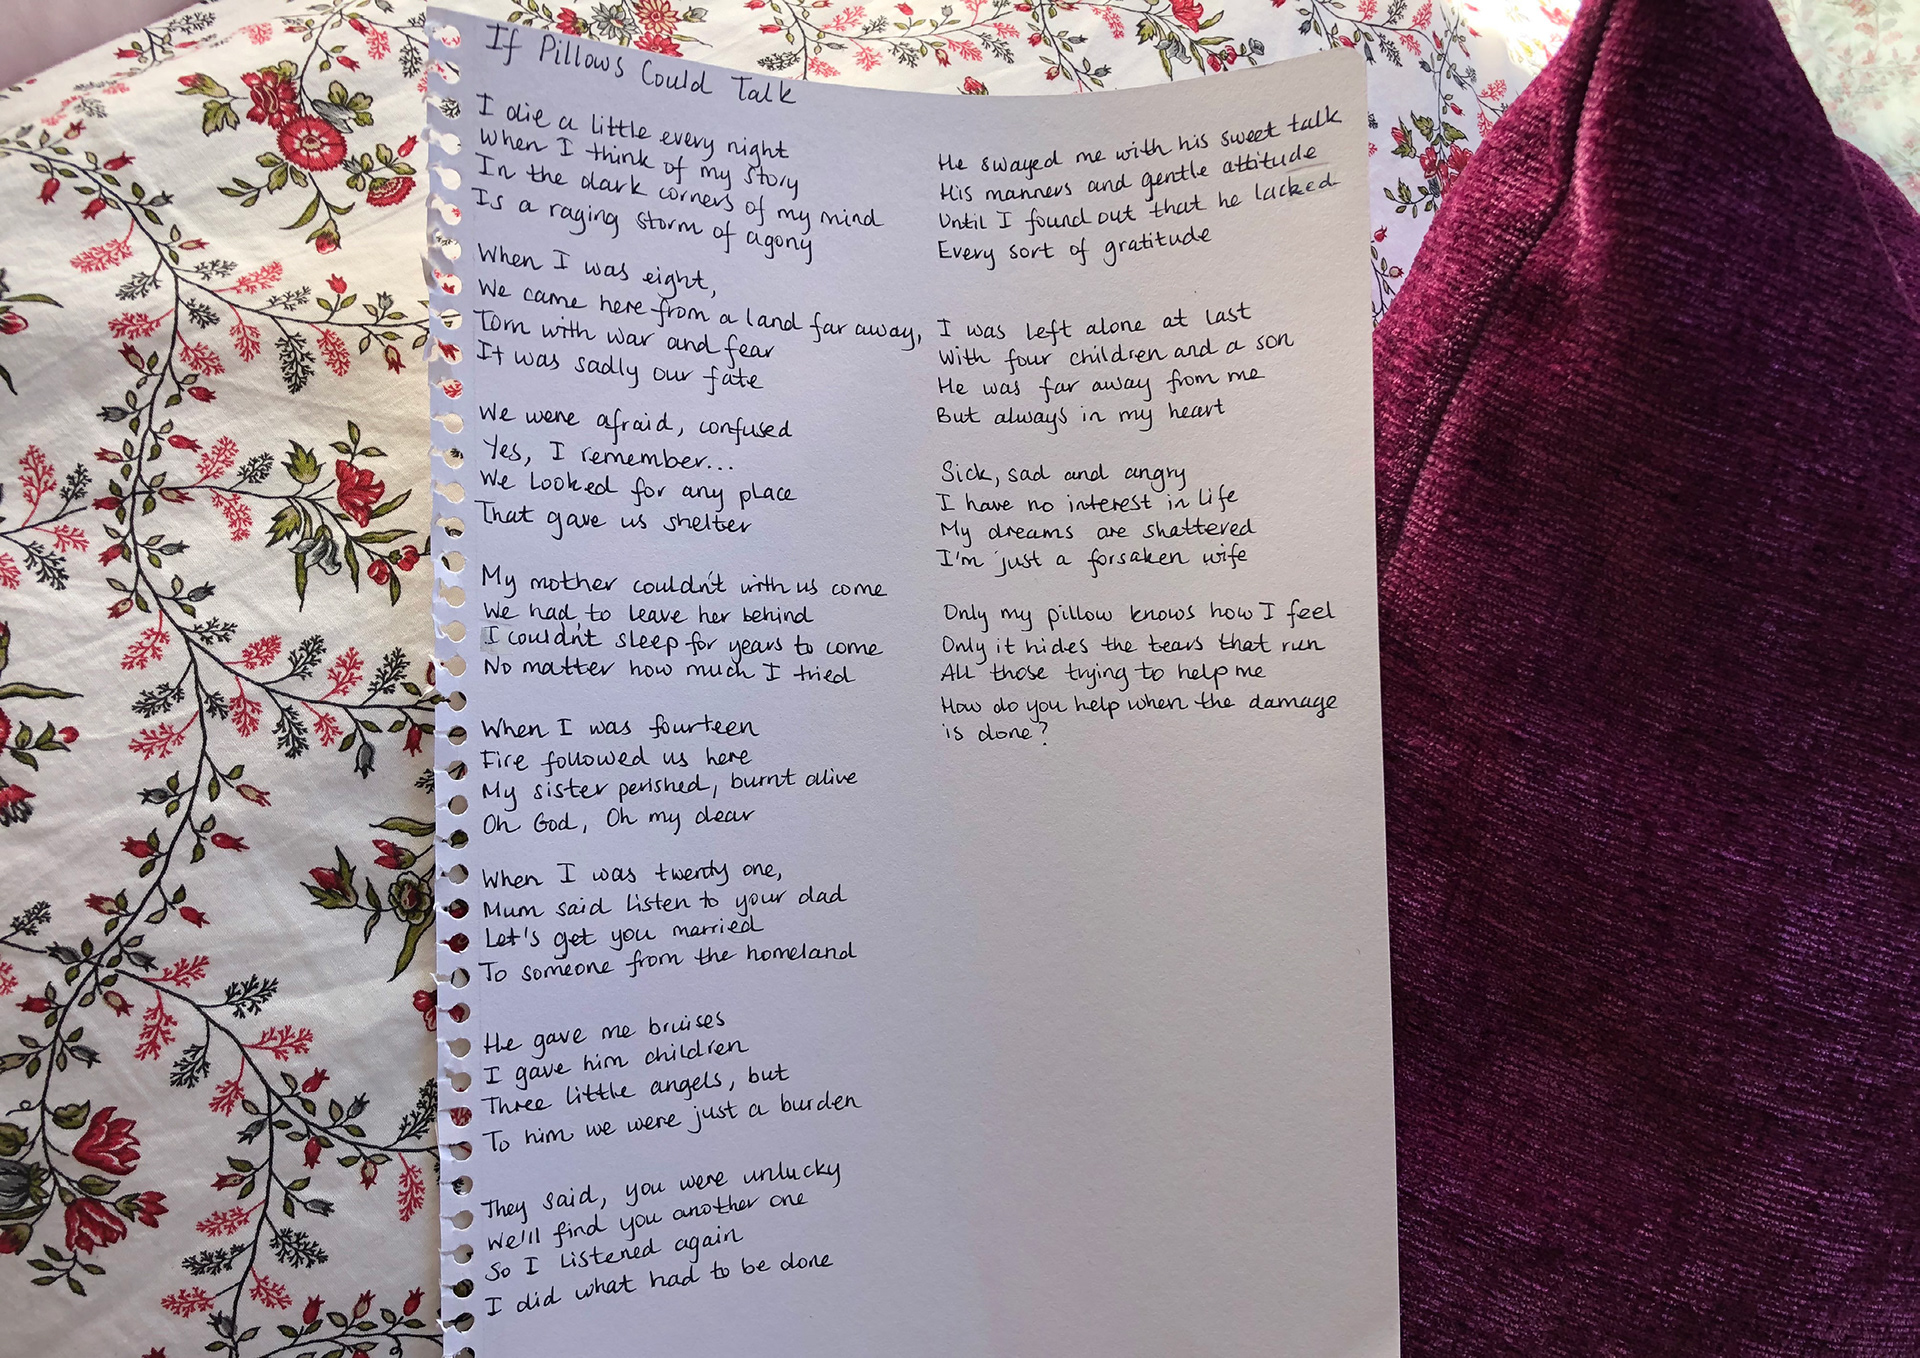 If Pillows Could Talk
I die a little every night
When I think of my story
In the dark corners of my mind
Is a raging storm of agony
When I was eight,
We came here from a land far away,
Torn with war and fear
It was sadly our fate
We were afraid, confused
Yes, I remember...
We looked for any place
That gave us shelter
My mother couldn't with us come
We had to leave her behind
I couldn't sleep for years to come
No matter how much I tried
When I was fourteen
Fire followed us here
My sister perished, burnt alive
Oh God, Oh my dear
When I was twenty one,
Mum said listen to your dad
Let's get you married
To someone from the homeland
He gave me bruises
I gave him children
Three little angels, but
To him we were just a burden
They said, you were unlucky
We'll find you another one
So I listened again
I did what had to be done
He swayed me with his sweet talk
His manners and gentle attitude
Until I found out that he lacked
Every sort of gratitude
I was left alone at last
With four children and a son
He was far away from me
But always in my heart
Sick, sad and angry
I have no interest in life
My dreams are shattered
I'm just a forsaken wife
Only my pillow knows how I feel
Only it hides the tears that run
All those trying to help me
How do you help when the damage
is done?